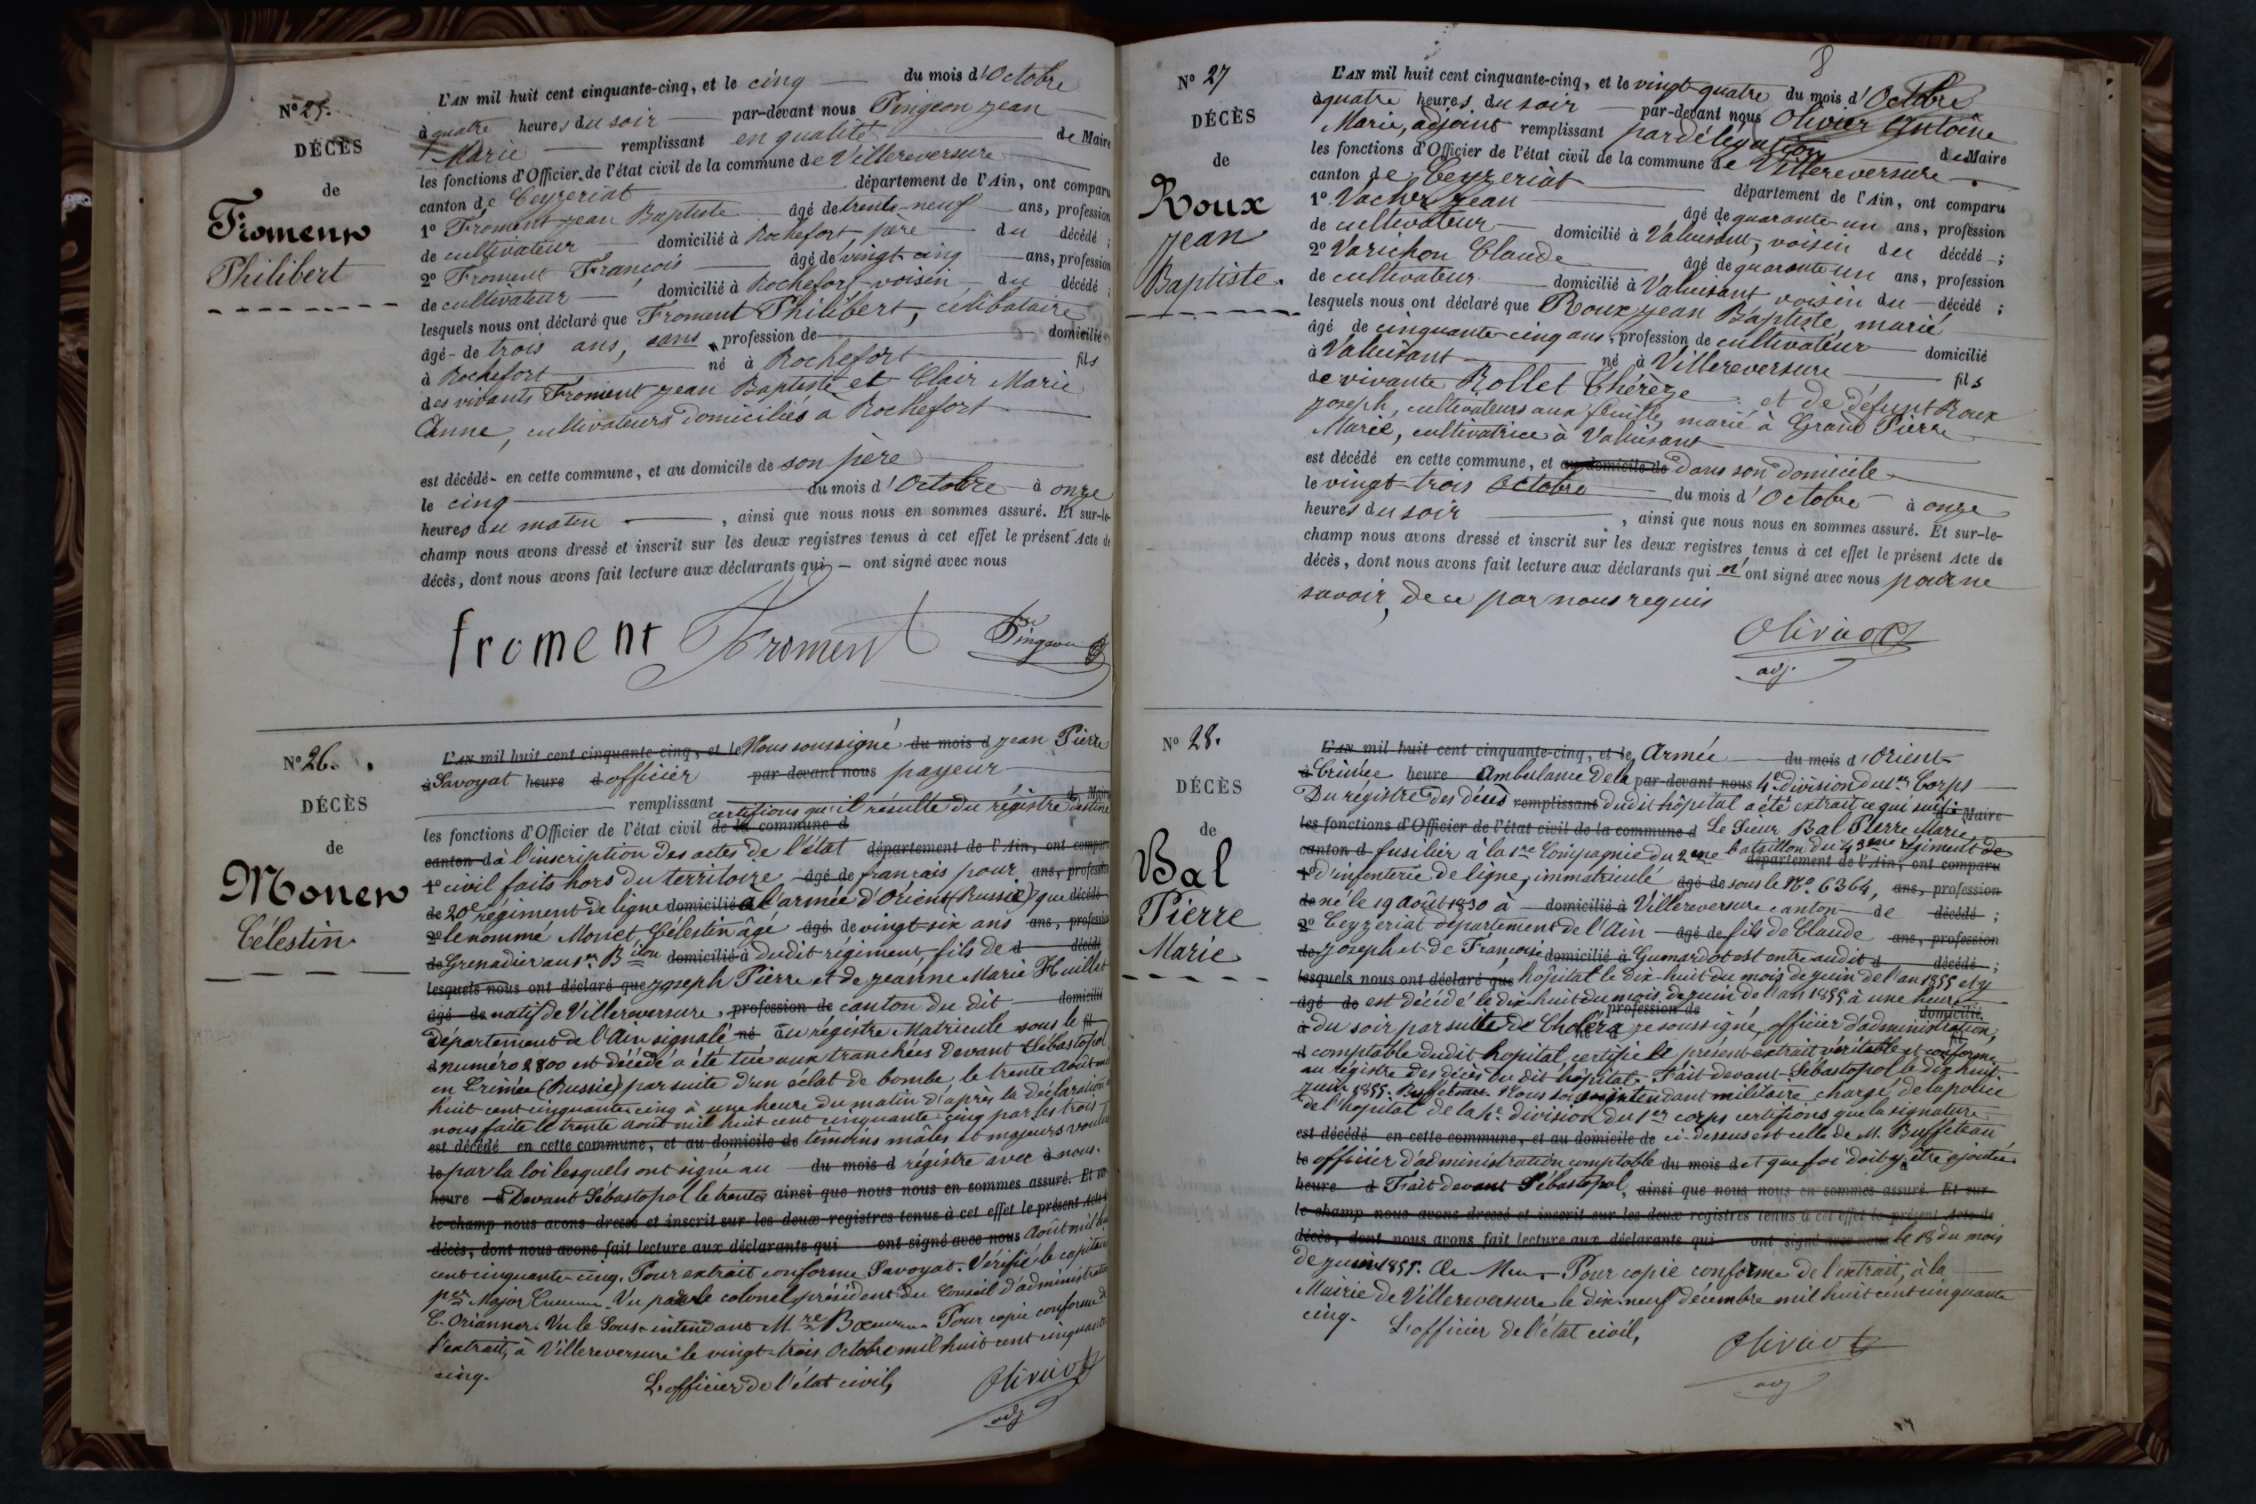 N° 25.
DÉCÈS
de
Froment
Philibert
L'AN mil huit cent cinquante-cinq, et le cinq du mois d'Octobre
à quatre heures du soir par-devant nous Pingeon Jean
Marie remplissant en qualité de Maire
les fonctions d'Officier de l'état civil de la commune de Villereversure
canton de Ceyzeriat département de l'Ain, ont comparu
1° Froment Jean Baptiste âgé de trente-neuf ans, profession
de cultivateur domicilié à Rochefort père du décédé ;
2° Froment François âgé de vingt-cinq ans, profession
de cultivateur domicilié à Rochefort voisin du décédé ;
lesquels nous ont déclaré que Froment Philibert, célibataire
âgé de trois ans, sans profession de domicilié
à Rochefort né à Rochefort fils
des vivants Froment Jean Baptiste et Clair Marie
Anne, cultivateurs domiciliés à Rochefort
est décédé en cette commune, et au domicile de son père
le cinq du mois d'Octobre à onze
heures du matin, ainsi que nous nous en sommes assuré. Et sur-le-
champ nous avons dressé et inscrit sur les deux registres tenus à cet effet le présent Acte de
décès, dont nous avons fait lecture aux déclarants qui ont signé avec nous
froment Froment Pingeon
N° 26.
DÉCÈS
de
Monet
Célestin
L'AN mil huit cent cinquante-cinq, et le Nous soussigné du mois d Jean Pierre
à Savoyat heure d officier par-devant nous payeur
remplissant certifions qu'il résulte du régistre destiné d Maire
les fonctions d'Officier de l'état civil de la commune d
canton d à l'inscription des actes de l'état département de l'Ain, ont comparu
1° civil faits hors du territoire âgé de français pour ans, profession
de 20e régiment de ligne domicilié à l'armée d'Orient (Russie) que décédé
2° le nommé Monet Célestin âgé âgé de vingt-six ans ans, profession
de Grenadier au 1er Bllon domicilié à dudit régiment, fils de d décédé
lesquels nous ont déclaré que Joseph Pierre et de Jeanne Marie Huillet
âgé de natif de Villereversure, profession de canton du dit domicilié
Département de l'Ain signalé né au régistre Matricule sous le fil
d numéro 2800 est décédé a été tué aux tranchées devant Sébastopol
en Crimée (Russie) par suite d'un éclat de bombe, le trente Août mil
huit cent cinquante cinq à une heure du matin d'après la déclaration à
nous faite le trente août mil huit cent cinquante-cinq par les trois
est décédé en cette commune, et au domicile de témoins mâles et majeurs voulus
le par la loi lesquels ont signé au du mois d régistre avec à nous.
heure d Devant Sébastopol le trente ainsi que nous nous en sommes assuré. Et sur-
le-champ nous avons dressé et inscrit sur les deux registres tenus à cet effet le présent Acte de
décès, dont nous avons fait lecture aux déclarants qui ont signé avec nous Août mil huit
cent cinquante-cinq. Pour extrait conforme Savoyat. Vérifié le capitaine
Major Vu par le colonel président du Conseil d'administration
C. Orianner. Vu le Sous-intendant Mre Pour copie conforme de
l'extrait, à Villereversure le vingt-trois Octobre mil huit cent cinquante
cinq.
L'officier de l'état civil,
Olivier
adj
8
N° 27
DÉCÈS
de
Roux
Jean
Baptiste.
L'AN mil huit cent cinquante-cinq, et le vingt-quatre du mois d'Octobre
à quatre heures du soir par-devant nous Olivier Antoine
Marie, adjoint remplissant par délégation de Maire
les fonctions d'Officier de l'état civil de la commune de Villereversure
canton de Ceyzeriat département de l'Ain, ont comparu
1° Vacher Jean âgé de quarante-un ans, profession
de cultivateur domicilié à Valuisant, voisin du décédé ;
2° Varichon Claude âgé de quarante un ans, profession
de cultivateur domicilié à Valuisant voisin du décédé ;
lesquels nous ont déclaré que Roux Jean Baptiste, marié
âgé de cinquante-cinq ans, profession de cultivateur domicilié
à Valuisant né à Villereversure fils
de vivante Rollet Thérèze et de défunt Roux
Joseph, cultivateurs aux marié à Grand Pierre
Marie, cultivatrice à Valuisant
est décédé en cette commune, et au domicile de dans son domicile
le vingt-trois Octobre du mois d'Octobre à onze
heures du soir, ainsi que nous nous en sommes assuré. Et sur-le-
champ nous avons dressé et inscrit sur les deux registres tenus à cet effet le présent Acte de
décès, dont nous avons fait lecture aux déclarants qui n'ont signé avec nous pour ne
savoir, de ce par nous requis
Olivier
adj.
N° 28.
DÉCÈS
de
Bal
Pierre
Marie
L'AN mil huit cent cinquante-cinq, et le Armée du mois d'Orient
à Crimée heure Ambulance de la par-devant nous 4e division du 1er Corps
Du régistre des décès remplissant dudit hôpital a été extrait ce qui suit: Maire
les fonctions d'Officier de l'état civil de la commune d Le Sieur Bal Pierre Marie
canton d fusilier à la 1re Compagnie du 2eme bataillon du 43eme régiment de
département de l'Ain, ont comparu
1° d'infenterie de ligne, immatriculé âgé de sous le N° 6364, ans, profession
de né le 19 août 1830 à domicilié à Villereversure canton de décédé ;
2° Ceyzeriat département de l'Ain âgé de fils de Claude ans, profession
de Joseph et de Françoise domicilié à Gumardot est entré audit d décédé ;
lesquels nous ont déclaré que hôpital le dix-huit du mois de juin de l'an 1855 et y
âgé de est décédé le dix-huit du mois de juin de l'an 1855 à une heure
profession de domicilié
à du soir par suite de Choléra né à je soussigné, officier d'administration,
d comptable dudit hopital, certifie le présent extrait véritable et conforme
au régistre des décès du dit hôpital. Fait devant Sébastopol le dix huit
juin 1855. Buffeteau. Nous sous intendant militaire chargé de la police
de l'hopital de la 4e division du 1er corps certifions que la signature
est décédé en cette commune, et au domicile de ci-dessus est celle de M. Buffeteau
le officier d'administration comptable du mois d et que foi doit y être ajoutée
heure d Fait devant Sébastopol, ainsi que nous nous en sommes assuré. Et sur-
le-champ nous avons dressé et inscrit sur les deux registres tenus à cet effet le présent Acte de
décès, dont nous avons fait lecture aux déclarants qui ont signé avec nous le 18 du mois
de juin 1855. Pour copie conforme de l'extrait, à la
Mairie de Villereversure le dix-neuf décembre mil huit cent cinquante
cinq.
L'officier de l'état civil,
Olivier
adj